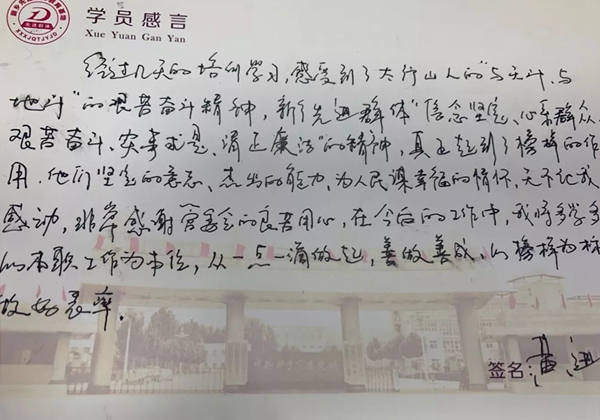 学员感言
Xue Yuan Gan Yan
XXXJQTJYJD
经过几天的培训学习,感受到了太行山人的"与天斗、与
地斗"的艰苦奋斗精神,新乡先进群体"信念坚定、心系群众、
艰苦奋斗、实事求是、清正廉洁"的精神,真正起到了榜样的作
用.他们坚定的意志、杰出的能力、为人民谋幸福的情怀,无不让我
感动,非常感谢管委会的良苦用心,在今后的工作中,我将多学多
以本职工作为本位,从一点一滴做起,善做善成,以榜样为标
做好表率.
签名: